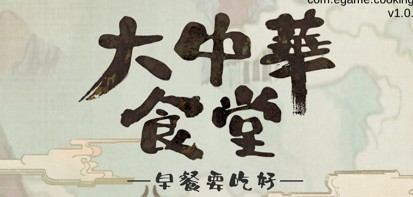 com.egame.cooking
v1.0.
大中華
食堂
早餐要吃好